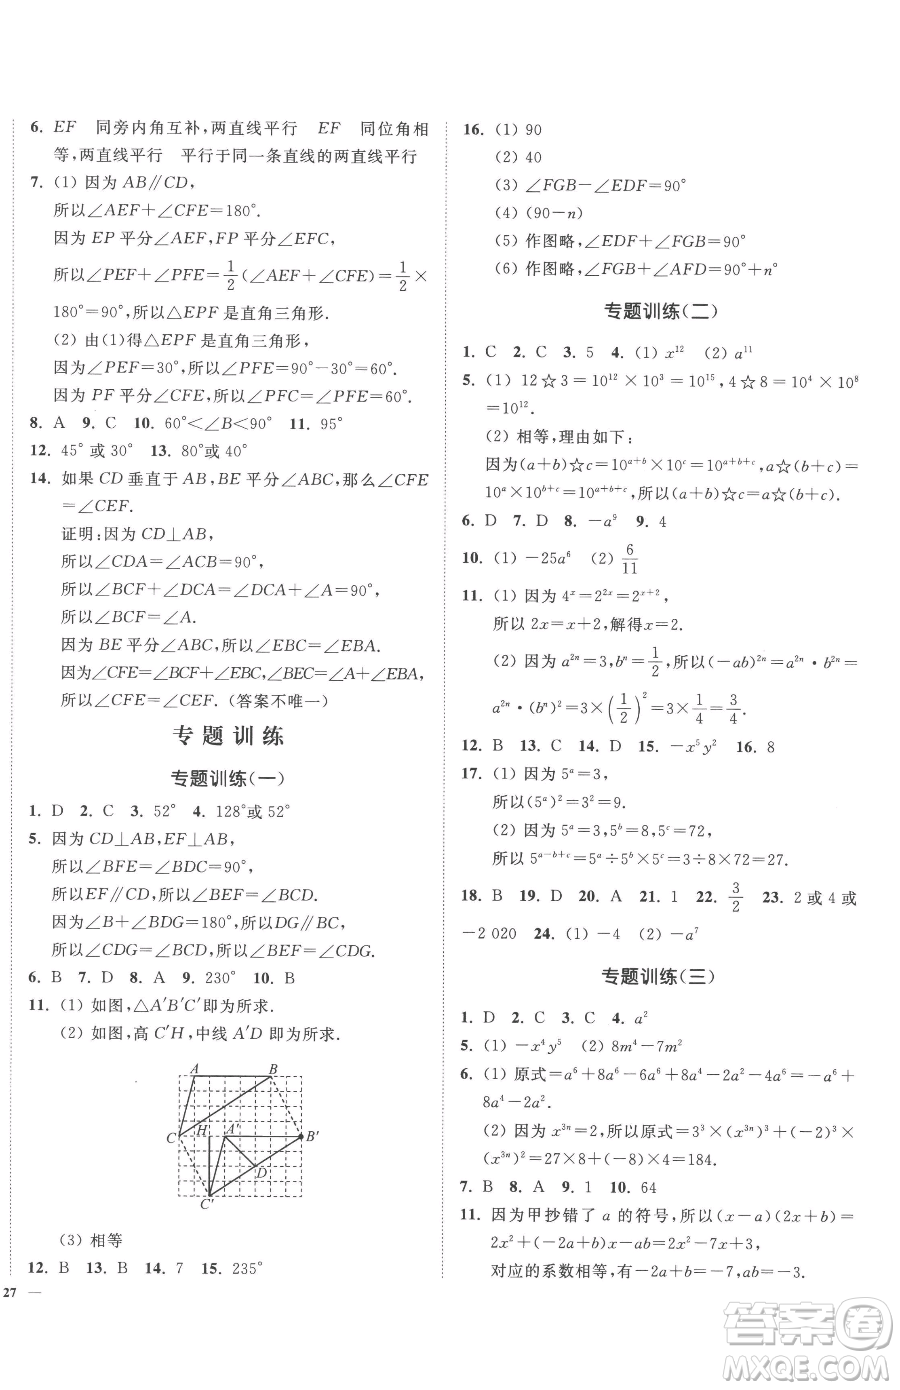 6. EF　同旁内角互补,两直线平行　EF　同位角相
等,两直线平行　平行于同一条直线的两直线平行
7. (1) 因为 AB∥CD,
所以∠AEF+∠CFE=180°.
因为 EP 平分∠AEF,FP 平分∠EFC,
所以∠PEF+∠PFE=1/2(∠AEF+∠CFE)=1/2×
180°=90°,所以△EPF 是直角三角形.
(2) 由(1)得△EPF 是直角三角形,
因为∠PEF=30°,所以∠PFE=90°-30°=60°.
因为 PF 平分∠EFC,所以∠PFC=∠PFE=60°.
8. A　9. C　10. 60°<∠B<90°　11. 95°
12. 45° 或 30°　13. 80°或 40°
14. 如果 CD 垂直于 AB,BE 平分∠ABC,那么∠CFE
=∠CEF.
证明:因为 CD⊥AB,
所以∠CDA=∠ACB=90°,
所以∠BCF+∠DCA=∠DCA+∠A=90°,
所以∠BCF=∠A.
因为 BE 平分∠ABC,所以∠EBC=∠EBA.
因为∠CFE=∠BCF+∠EBC,∠BEC=∠A+∠EBA,
所以∠CFE=∠CEF.(答案不唯一)
专题训练
专题训练(一)
1. D　2. C　3. 52°　4. 128°或 52°
5. 因为 CD⊥AB,EF⊥AB,
所以∠BFE=∠BDC=90°,
所以EF∥CD,所以∠BEF=∠BCD.
因为∠B+∠BDG=180°,所以DG∥BC,
所以∠CDG=∠BCD,所以∠BEF=∠CDG.
6. B　7. D　8. A　9. 230°　10. B
11. (1) 如图,△A′B′C′即为所求.
(2) 如图,高 C′H,中线 A′D 即为所求.
A　B
C　H　A′　B′
D
C′
(3) 相等
12. B　13. B　14. 7　15. 235°
27 —
16. (1) 90
(2) 40
(3) ∠FGB-∠EDF=90°
(4) (90-n)
(5) 作图略,∠EDF+∠FGB=90°
(6) 作图略,∠FGB+∠AFD=90°+n°
专题训练(二)
1. C　2. C　3. 5　4. (1) x¹²　(2) a¹¹
5. (1) 12☆3=10¹²×10³=10¹⁵,4☆8=10⁴×10⁸
=10¹².
(2) 相等,理由如下:
因为(a+b)☆c=10^(a+b)×10^c=10^(a+b+c),a☆(b+c)=
10^a×10^(b+c)=10^(a+b+c),所以(a+b)☆c=a☆(b+c).
6. D　7. D　8. -a⁹　9. 4
10. (1) -25a⁶　(2) 6/11
11. (1) 因为 4^x=2^(2x)=2^(x+2),
所以 2x=x+2,解得x=2.
(2) 因为 a^(2n)=3,b^n=1/2,所以(-ab)^(2n)=a^(2n)·b^(2n)=
a^(2n)·(b^n)²=3×(1/2)²=3×1/4=3/4.
12. B　13. C　14. D　15. -x⁵y²　16. 8
17. (1) 因为 5^a=3,
所以(5^a)²=3²=9.
(2) 因为 5^a=3,5^b=8,5^c=72,
所以 5^(a-b+c)=5^a÷5^b×5^c=3÷8×72=27.
18. B　19. D　20. A　21. 1　22. 3/2　23. 2 或 4 或
-2 020　24. (1) -4　(2) -a⁷
专题训练(三)
1. D　2. C　3. C　4. a²
5. (1) -x⁴y⁵　(2) 8m⁴-7m²
6. (1) 原式=a⁶+8a⁶-6a⁴-2a²-4a⁶=5a⁶+
8a⁴-2a².
(2) 因为 x^(3n)=2,所以原式=3³×(x^(3n))³+(-2)³×
(x^(3n))²=27×8+(-8)×4=184.
7. B　8. A　9. 1　10. 64
11. 因为甲抄错了 a 的符号,所以(x-a)(2x+b)=
2x²+(-2a+b)x-ab=2x²-7x+3,
对应的系数相等,所以-2a+b=-7,ab=-3.
答案圈
MXQE.COM